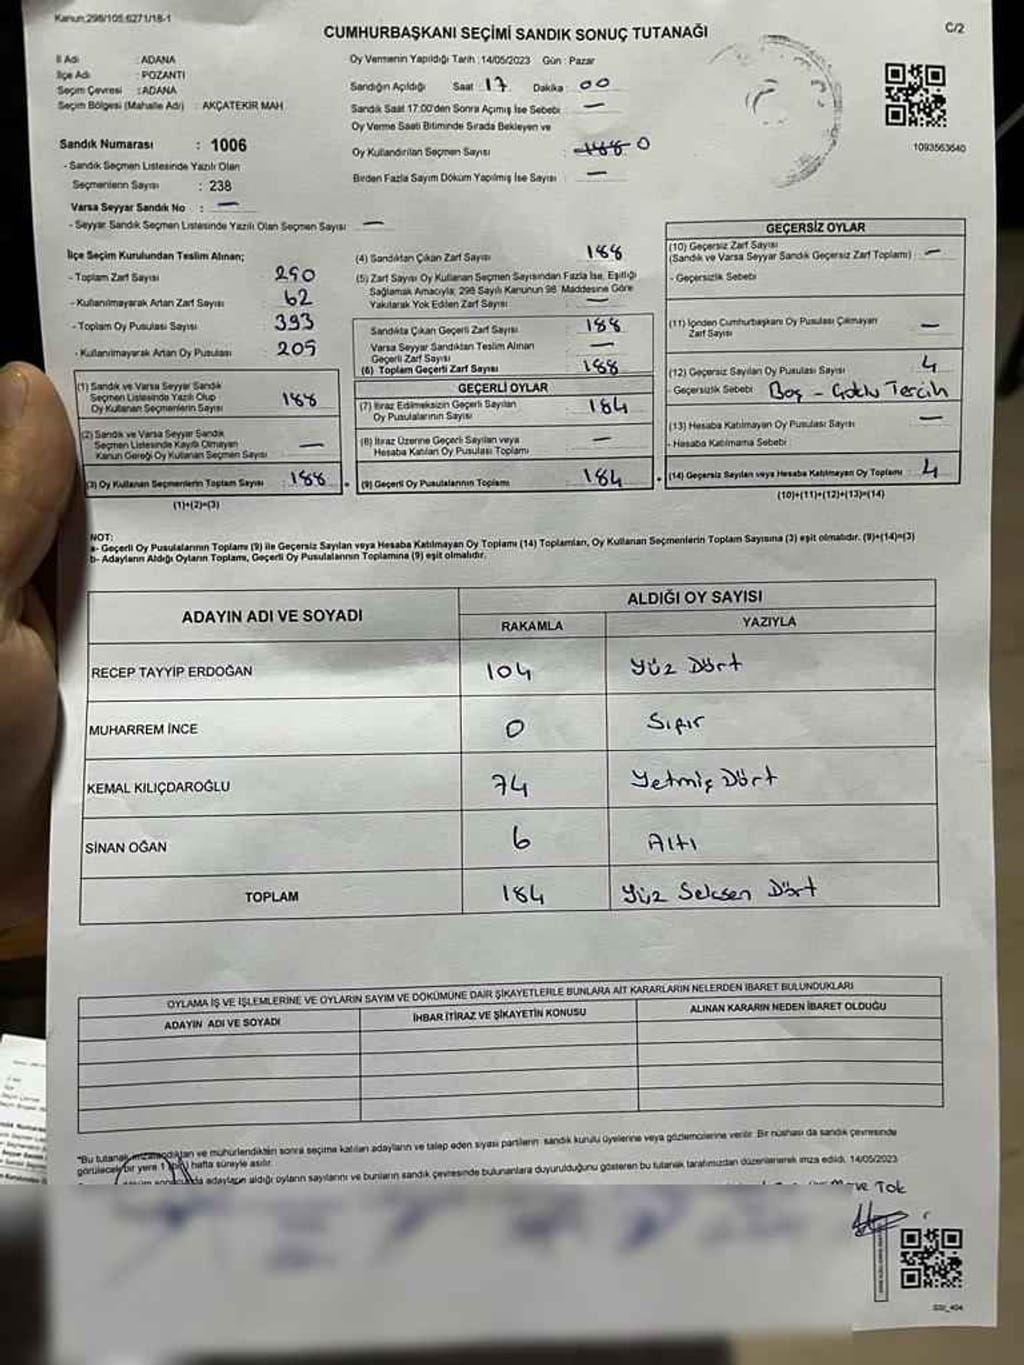 Kanun:298/105,6271/18-1
CUMHURBAŞKANI SEÇİMİ SANDIK SONUÇ TUTANAĞI
C/2
İl Adı : ADANA
İlçe Adı : POZANTI
Seçim Çevresi : ADANA
Seçim Bölgesi (Mahalle Adı) : AKÇATEKİR MAH
Sandık Numarası : 1006
- Sandık Seçmen Listesinde Yazılı Olan
Seçmenlerin Sayısı : 238
Varsa Seyyar Sandık No : —
- Seyyar Sandık Seçmen Listesinde Yazılı Olan Seçmen Sayısı —
Oy Vermenin Yapıldığı Tarih : 14/05/2023 Gün : Pazar
Sandığın Açıldığı Saat : 17 Dakika : 00
Sandık Saat 17:00'den Sonra Açımış İse Sebebi : —
Oy Verme Saati Bitiminde Sırada Bekleyen ve
Oy Kullandırılan Seçmen Sayısı : 188 0
Birden Fazla Sayım Döküm Yapılmış İse Sayısı : —
1093563640
İlçe Seçim Kurulundan Teslim Alınan;
- Toplam Zarf Sayısı 250
- Kullanılmayarak Artan Zarf Sayısı 62
- Toplam Oy Pusulası Sayısı 393
- Kullanılmayarak Artan Oy Pusulası 205
(1) Sandık ve Varsa Seyyar Sandık
Seçmen Listesinde Yazılı Olup
Oy Kullanan Seçmenlerin Sayısı 188
(2) Sandık ve Varsa Seyyar Sandık
Seçmen Listesinde Kayıtlı Olmayan
Kanun Gereği Oy Kullanan Seçmen Sayısı —
(3) Oy Kullanan Seçmenlerin Toplam Sayısı : 188
(1)+(2)=(3)
(4) Sandıktan Çıkan Zarf Sayısı 188
(5) Zarf Sayısı Oy Kullanan Seçmen Sayısından Fazla İse, Eşitliği
Sağlamak Amacıyla; 298 Sayılı Kanunun 98. Maddesine Göre
Yakılarak Yok Edilen Zarf Sayısı —
Sandıkta Çıkan Geçerli Zarf Sayısı : 188
Varsa Seyyar Sandıktan Teslim Alınan
Geçerli Zarf Sayısı —
(6) Toplam Geçerli Zarf Sayısı 188
GEÇERLİ OYLAR
(7) İtiraz Edilmeksizin Geçerli Sayılan
Oy Pusulalarının Sayısı 184
(8) İtiraz Üzerine Geçerli Sayılan veya
Hesaba Katılan Oy Pusulası Toplamı —
(9) Geçerli Oy Pusulalarının Toplamı 184
GEÇERSİZ OYLAR
(10) Geçersiz Zarf Sayısı
(Sandık ve Varsa Seyyar Sandık Geçersiz Zarf Toplamı) —
- Geçersizlik Sebebi
(11) İçinden Cumhurbaşkanı Oy Pusulası Çıkmayan
Zarf Sayısı —
(12) Geçersiz Sayılan Oy Pusulası Sayısı 4
- Geçersizlik Sebebi : Boş - Çoklu Tercih
(13) Hesaba Katılmayan Oy Pusulası Sayısı —
- Hesaba Katılmama Sebebi
(14) Geçersiz Sayılan veya Hesaba Katılmayan Oy Toplamı 4
(10)+(11)+(12)+(13)=(14)
NOT:
a- Geçerli Oy Pusulalarının Toplamı (9) ile Geçersiz Sayılan veya Hesaba Katılmayan Oy Toplamı (14) Toplamları, Oy Kullanan Seçmenlerin Toplam Sayısına (3) eşit olmalıdır. (9)+(14)=(3)
b- Adayların Aldığı Oyların Toplamı, Geçerli Oy Pusulalarının Toplamına (9) eşit olmalıdır.
ADAYIN ADI VE SOYADI
ALDIĞI OY SAYISI
RAKAMLA YAZIYLA
RECEP TAYYİP ERDOĞAN 104 Yüz Dört
MUHARREM İNCE 0 Sıfır
KEMAL KILIÇDAROĞLU 74 Yetmiş Dört
SİNAN OĞAN 6 Altı
TOPLAM 184 Yüz Seksen Dört
OYLAMA İŞ VE İŞLEMLERİNE VE OYLARIN SAYIM VE DÖKÜMÜNE DAİR ŞİKAYETLERLE BUNLARA AİT KARARLARIN NELERDEN İBARET BULUNDUKLARI
ADAYIN ADI VE SOYADI İHBAR İTİRAZ VE ŞİKAYETİN KONUSU ALINAN KARARIN NEDEN İBARET OLDUĞU
"Bu tutanak ve mühürlendikten sonra seçime katılan adayların ve talep eden siyasi partilerin sandık kurulu üyelerine veya gözlemcilerine verilir. Bir nüshası da sandık çevresinde
görülecek bir yere 1 hafta süreyle asılır.
adayların aldığı oyların sayılarını ve bunların sandık çevresinde bulunanlara duyurulduğunu gösteren bu tutanak tarafımızdan düzenlenerek imza edildi. 14/05/2023
Tok